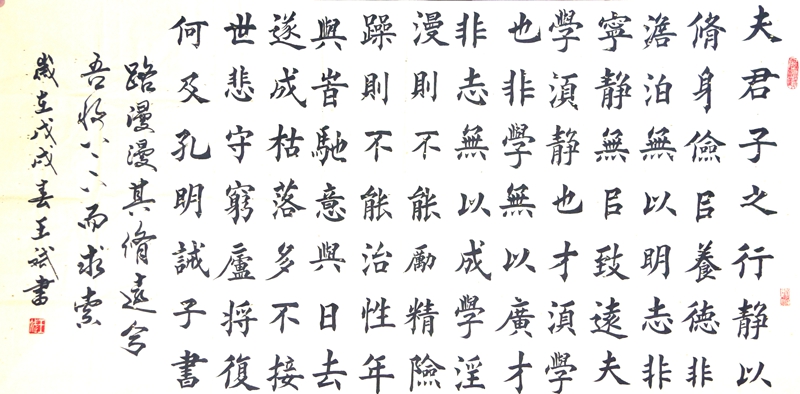 夫君子之行静以
脩身儉㠯養德非
澹泊無以明志非
寧静無㠯致遠夫
學湏静也才湏學
也非學無以廣才
非志無以成學淫
漫則不能勵精險
躁則不能治性年
與旹馳意與日去
遂成枯落多不接
世悲守窮廬将復
何及孔明誡子書
路漫漫其脩遠兮
吾将上下而求索
歲在戊戌春王斌書